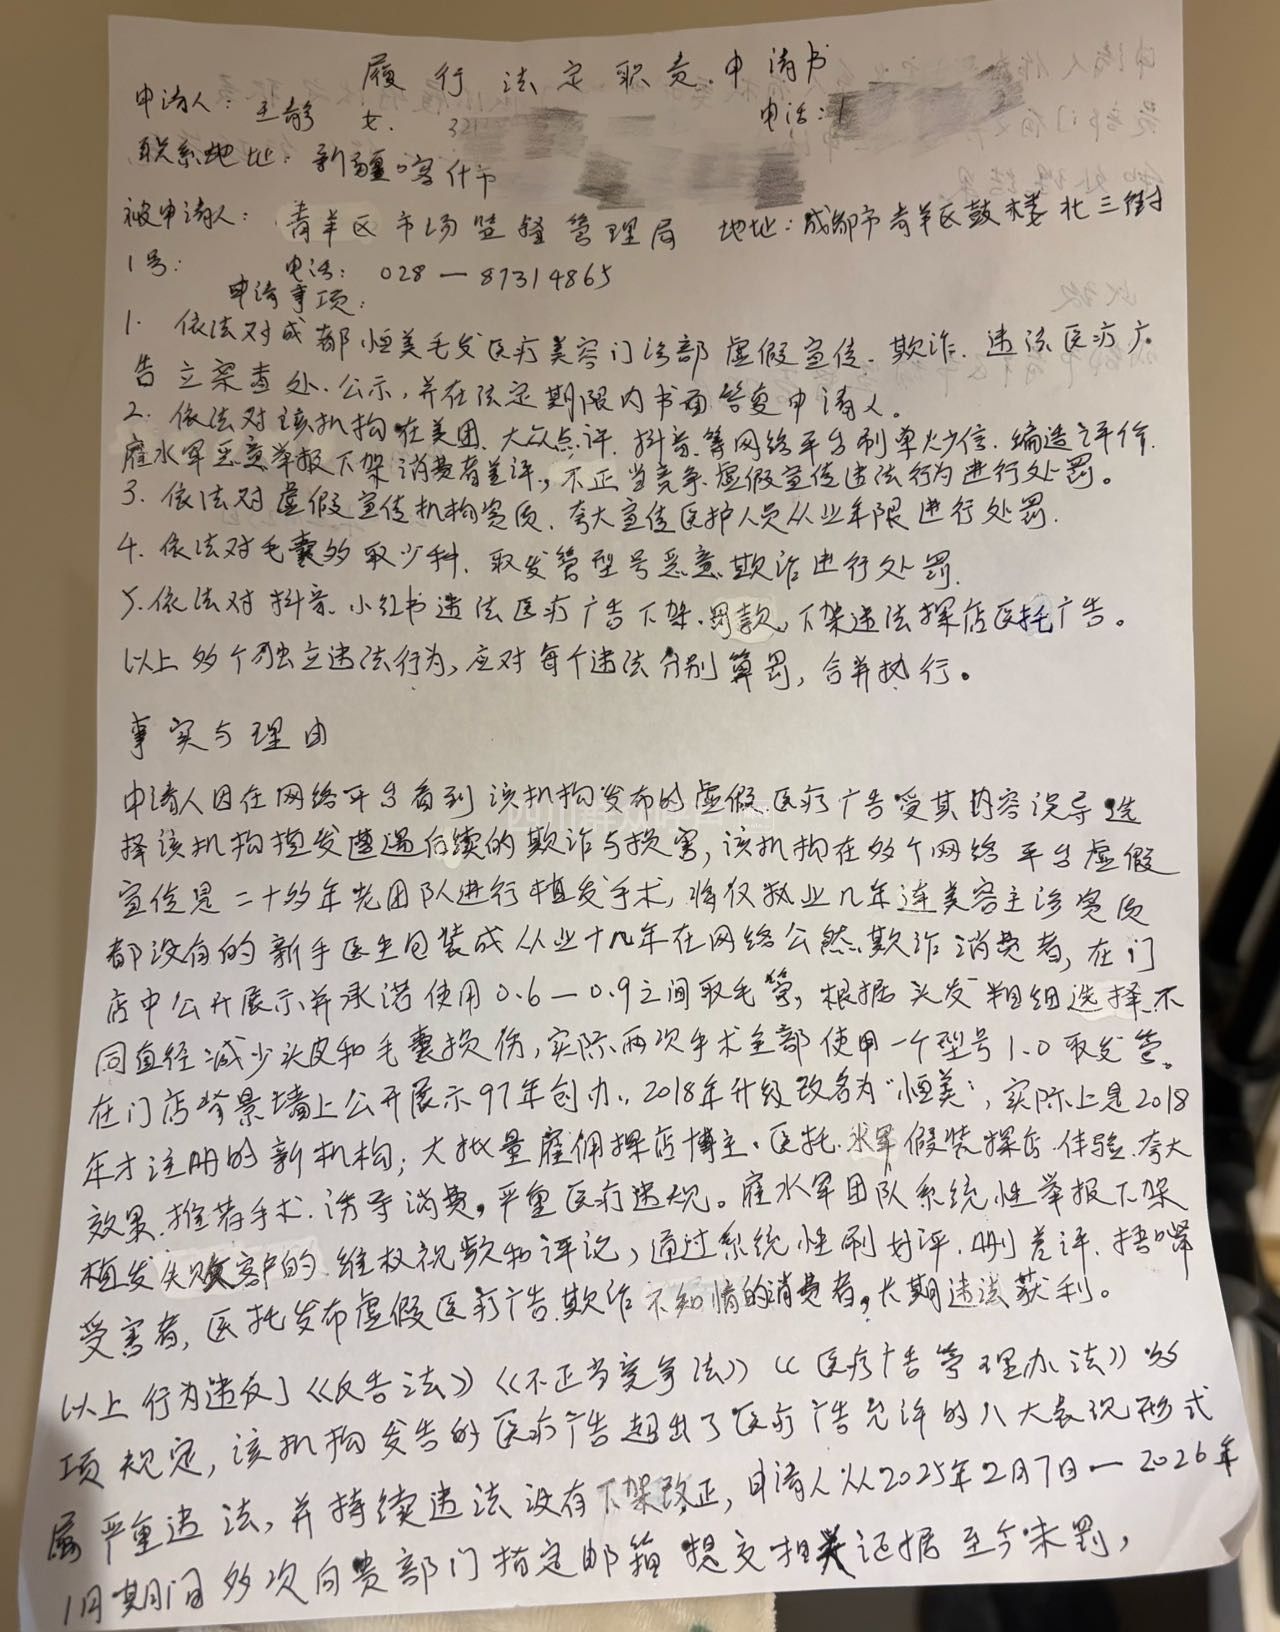 履行法定职责申请书
申请人：王静 女. 321 电话：1
联系地址：新疆喀什市
被申请人：青羊区市场监督管理局 地址：成都市青羊区鼓楼北三街
1号： 电话：028—87314865
申请事项：
1. 依法对成都恒美毛发医疗美容门诊部虚假宣传、欺诈、违法医疗广
告立案查处、公示，并在法定期限内书面答复申请人。
2. 依法对该机构在美团、大众点评、抖音等网络平台刷单炒信、编造评价、
雇水军恶意举报下架消费者差评，不正当竞争、虚假宣传违法行为进行处罚。
3. 依法对虚假宣传机构资质、夸大宣传医护人员从业年限进行处罚.
4. 依法对毛囊多取少种、取发管型号恶意欺诈进行处罚.
5. 依法对抖音、小红书违法医疗广告下架、罚款、下架违法探店医托广告。
以上多个独立违法行为，应对每个违法分别算罚，合并执行。
事实与理由
申请人因在网络平台看到该机构发布的虚假医疗广告受其内容误导选
择该机构植发遭遇后续的欺诈与损害，该机构在多个网络平台虚假
宣传是二十多年老团队进行植发手术，将仅执业几年连美容主诊资质
都没有的新手医生包装成从业十几年在网络公然欺诈消费者，在门
店中公开展示并承诺使用0.6—0.9之间取毛管，根据头发粗细选择不
同直径减少头皮和毛囊损伤，实际两次手术全部使用一个型号1.0取发管。
在门店背景墙上公开展示97年创办，2018年升级改名为“恒美”，实际上是2018
年才注册的新机构；大批量雇佣探店博主、医托、水军假装探店、体验、夸大
效果、推荐手术、诱导消费，严重医疗违规。雇水军团队系统性举报下架
植发失败客户的维权视频和评论，通过系统性刷好评、删差评、捂嘴
受害者，医托发布虚假医疗广告欺诈不知情的消费者，长期违法获利。
以上行为违反《广告法》《不正当竞争法》《医疗广告管理办法》多
项规定，该机构发告的医疗广告超出了医疗广告允许的八大表现形式
属严重违法，并持续违法没有下架改正，申请人从2025年2月7日—2026年
1月期间多次向贵部门指定邮箱提交相关证据至今未罚，